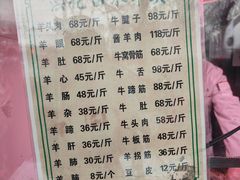 羊头肉 68元/斤 牛腱子 98元/斤
羊眼 68元/斤 酱羊肉 118元/斤
羊肚 68元/斤 牛窝骨筋 68元/斤
羊心 45元/斤 牛舌 98元/斤
羊肠 48元/斤 牛蹄筋 88元/斤
羊杂 38元/斤 牛肚 68元/斤
羊蹄 36元/斤 牛头肉 58元/斤
羊肝 36元/斤 牛板筋 48元/斤
羊肺 30元/斤 羊拐筋 36元/斤
羊肺 8元/个 豆皮 12元/斤